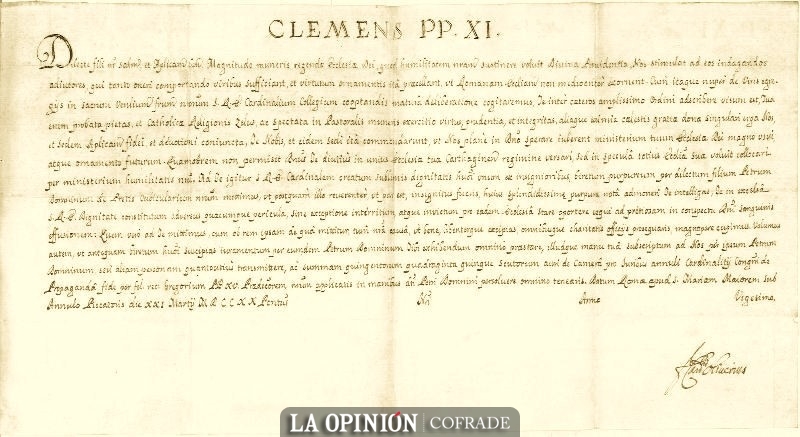 CLEMENS PP. XI.
Dilecte fili nr salutem et Aplicam Magnitudo muneris regendo Ecclesia Dei, quod humilitatem nram sustinere voluit Divina Providentia, Nos stimulat ad eos indagandos
adiutores, qui tanto oneri comportando viribus sufficiant, et virtutum ornamentis ita praecellant, ut Romanam non mediocriter exornent. Cum itaque nuper de Viris egre-
gijs in sacrum Venlium frum nrorum S.R.E. Cardinalium Collegium cooptandis matura deliberatione cogitaremus, Te inter ceteros amplissimo Ordini adscribere visum est, Tua
enim probata pietas, et Catholicae Religionis Zelus, ac spectata in Pastoralis muneris exercitio virtus, prudentia, et integritas, aliaque eximia caelestis gratia dona singulari erga Nos,
et Sedem Aplicam fidei, et devotioni coniuncta, de Nobis, et eidem sedi ita commendarunt, ut Nos plane in Dno sperare iuberent ministerium tuum Ecclesia Dei magno usui,
atque ornamento futurum. Quamobrem non permisit te diutius in unius Ecclesia tua Carthaginen regimine versari, sed in specula totius voluit collocari,
per ministerium humilitatis nrae. Ad Te igitur S.R.E. Cardinalem creatum sublimis dignitatis huius unum ex insignioribus, biretum purpureum per dilectum filium Petrum
Bonninum de Cubicularium nrum mittimus, ut postquam illo reverenter ut par est, insignitus fueris, huius splendidissimae purpurae nota admoneri Te intelligas, Te in excelsa
S.R.E. Dignitate constitutum adversus quaecumque pericula, sine exceptione interritum atque invictum pro eadem Ecclesia stare oportere usque ad in conspectu Dni sanguinis
effusionem: Quem vero ad Te mittimus, cum ob rem ipsam de qua mittitur tum ut bene, libenterque accipias omnibusque charitatis officijs prosequaris magnopere cupimus. Volumus
autem, ut antequam biretum huiusmodi suscipias iuramentum per eundem Petrum Bonninum Tibi exhibendum omnino praestare, illudque manu tua subscriptum ad Nos per ipsum Petrum
Bonninum seu aliam personam quantocitius transmittere, ac summam quingentorum quadraginta quinque Scutorum auri de Camera pro Juribus annuli Cardinalitij Congni de
Propaganda fide per fel. rec. Gregorium PP. XV. Praedecorem nrum applicatis in manibus dti Petri Bonnini persolvere omnino tenearis. Datum Romae apud S. Mariam Maiorem sub
Annulo Piscatoris die XXI Martij MDCCXX Pontus Nri Anno Vigesimo.
LA OPINIÓN COFRADE